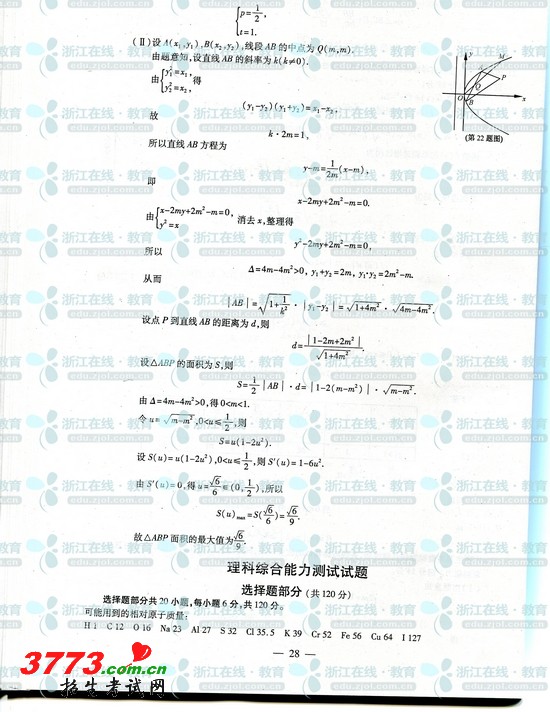 {p=1/2,
t=1.
(Ⅱ)设 A(x₁,y₁),B(x₂,y₂),线段 AB 的中点为 Q(m,m).
由题意知,设直线 AB 的斜率为 k(k≠0).
由{y₁²=x₁, y₂²=x₂, 得
(y₁-y₂)(y₁+y₂)=x₁-x₂,
故
k·2m=1,
所以直线 AB 方程为
y-m=1/2m(x-m),
即
x-2my+2m²-m=0.
由{x-2my+2m²-m=0, y²=x 消去 x,整理得
y²-2my+2m²-m=0,
所以
Δ=4m-4m²>0, y₁+y₂=2m, y₁·y₂=2m²-m.
从而
|AB|=√(1+1/k²)·|y₁-y₂|=√(1+4m²)·√(4m-4m²).
设点 P 到直线 AB 的距离为 d,则
d=|1-2m+2m²|/√(1+4m²).
设△ABP 的面积为 S,则
S=1/2|AB|·d=|1-2(m-m²)|·√(m-m²).
由 Δ=4m-4m²>0,得 0<m<1.
令 u=√(m-m²),0<u≤1/2,则
S=u(1-2u²).
设 S(u)=u(1-2u²),0<u≤1/2,则 S′(u)=1-6u².
由 S′(u)=0,得 u=√6/6∈(0,1/2),所以
S(u)max=S(√6/6)=√6/9.
故△ABP 面积的最大值为√6/9.
y
M
A
P
Q
O
B
x
(第22题图)
理科综合能力测试试题
选择题部分(共120分)
选择题部分共20小题,每小题6分,共120分。
可能用到的相对原子质量:
H 1 C 12 O 16 Na 23 Al 27 S 32 Cl 35.5 K 39 Cr 52 Fe 56 Cu 64 I 127
— 28 —
3773.com.cn
招生考试网
浙江在线·教育
edu.zjol.com.cn